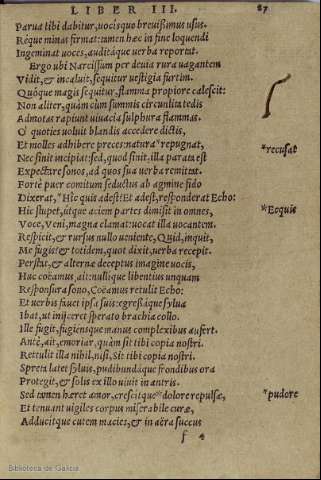 LIBER III. 87
Parua tibi dabitur, uocisque breuißimus usus.
Réque minas firmat: tamen hæc in fine loquendi
Ingeminat uoces, auditáque uerba reportat.
Ergo ubi Narcissum per deuia rura uagantem
Vidit, & incaluit, sequitur uestigia furtim.
Quóque magis sequitur, flamma propiore calescit:
Non aliter, quàm cùm summis circunlita tedis
Admotas rapiunt uiuacia sulphura flammas.
O quoties uoluit blandis accedere dictis,
Et molles adhibere preces: natura *repugnat, *recusat
Nec sinit incipiat: sed, quod sinit, illa parata est
Expectare sonos, ad quos sua uerba remittat.
Fortè puer comitum seductus ab agmine fido
Dixerat, *Hîc quis adest? Et adest, responderat Echo: *Ecquis
Hic stupet, útque aciem partes dimisit in omnes,
Voce, Veni, magna clamat: uocat illa uocantem.
Respicit, & rursus nullo ueniente, Quid, inquit,
Me fugis? & totidem, quot dixit, uerba recepit.
Perstat, & alternæ deceptus imagine uocis,
Huc coëamus, ait: nullique libentius unquam
Responsura sono, Coëamus retulit Echo:
Et uerbis fauet ipsa suis: egressáque sylua
Ibat, ut inijceret sperato brachia collo.
Ille fugit, fugiensque manus complexibus aufert.
Antè, ait, emoriar, quàm sit tibi copia nostri.
Rettulit illa nihil, nisi, Sit tibi copia nostri.
Spreta latet syluis, pudibundáque frondibus ora
Protegit, & solis ex illo uiuit in antris.
Sed tamen hæret amor, crescitque *dolore repulsæ, *pudore
Et tenuant uigiles corpus miserabile curæ,
Adducitque cutem macies, & in aëra succus
f 4
Biblioteca de Galicia